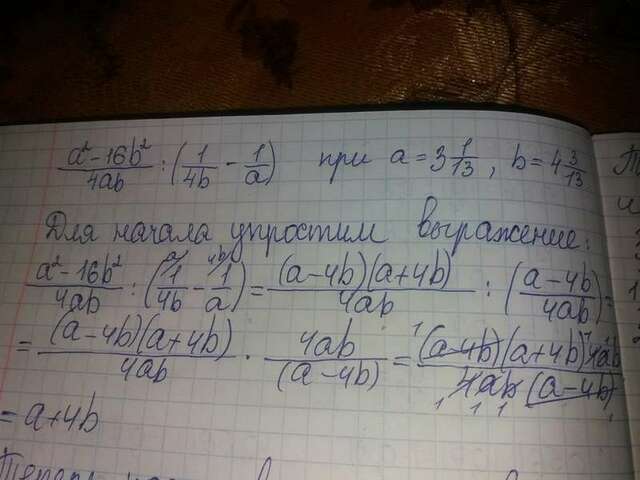 (a² - 16b²)/(4ab) : (1/(4b) - 1/a) при a = 3 1/13, b = 4 3/13
Для начала упростим выражение:
(a² - 16b²)/(4ab) : (1/(4b) - 1/a) = ((a - 4b)(a + 4b))/(4ab) : ((a - 4b)/(4ab)) =
= ((a - 4b)(a + 4b))/(4ab) · (4ab)/((a - 4b)) = ((a - 4b)(a + 4b) 4ab)/(4ab (a - 4b))
= a + 4b